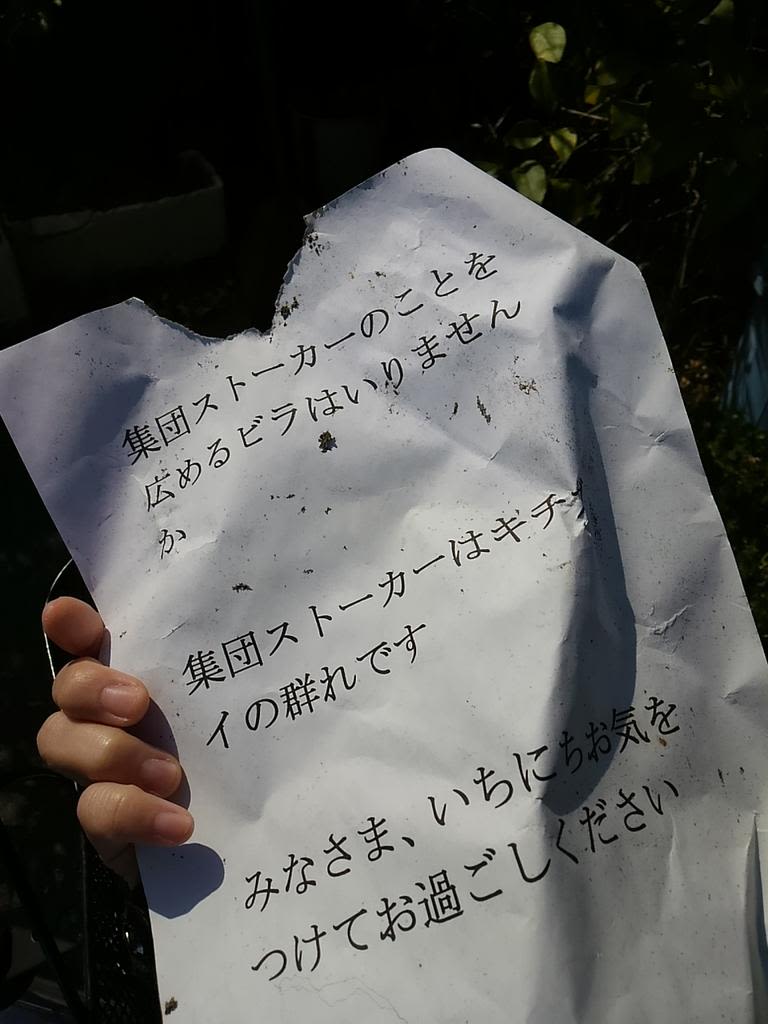 集団ストーカーのことを
広めるビラはいりません
か
集団ストーカーはキチガ
イの群れです
みなさま、いちにちお気を
つけてお過ごしください